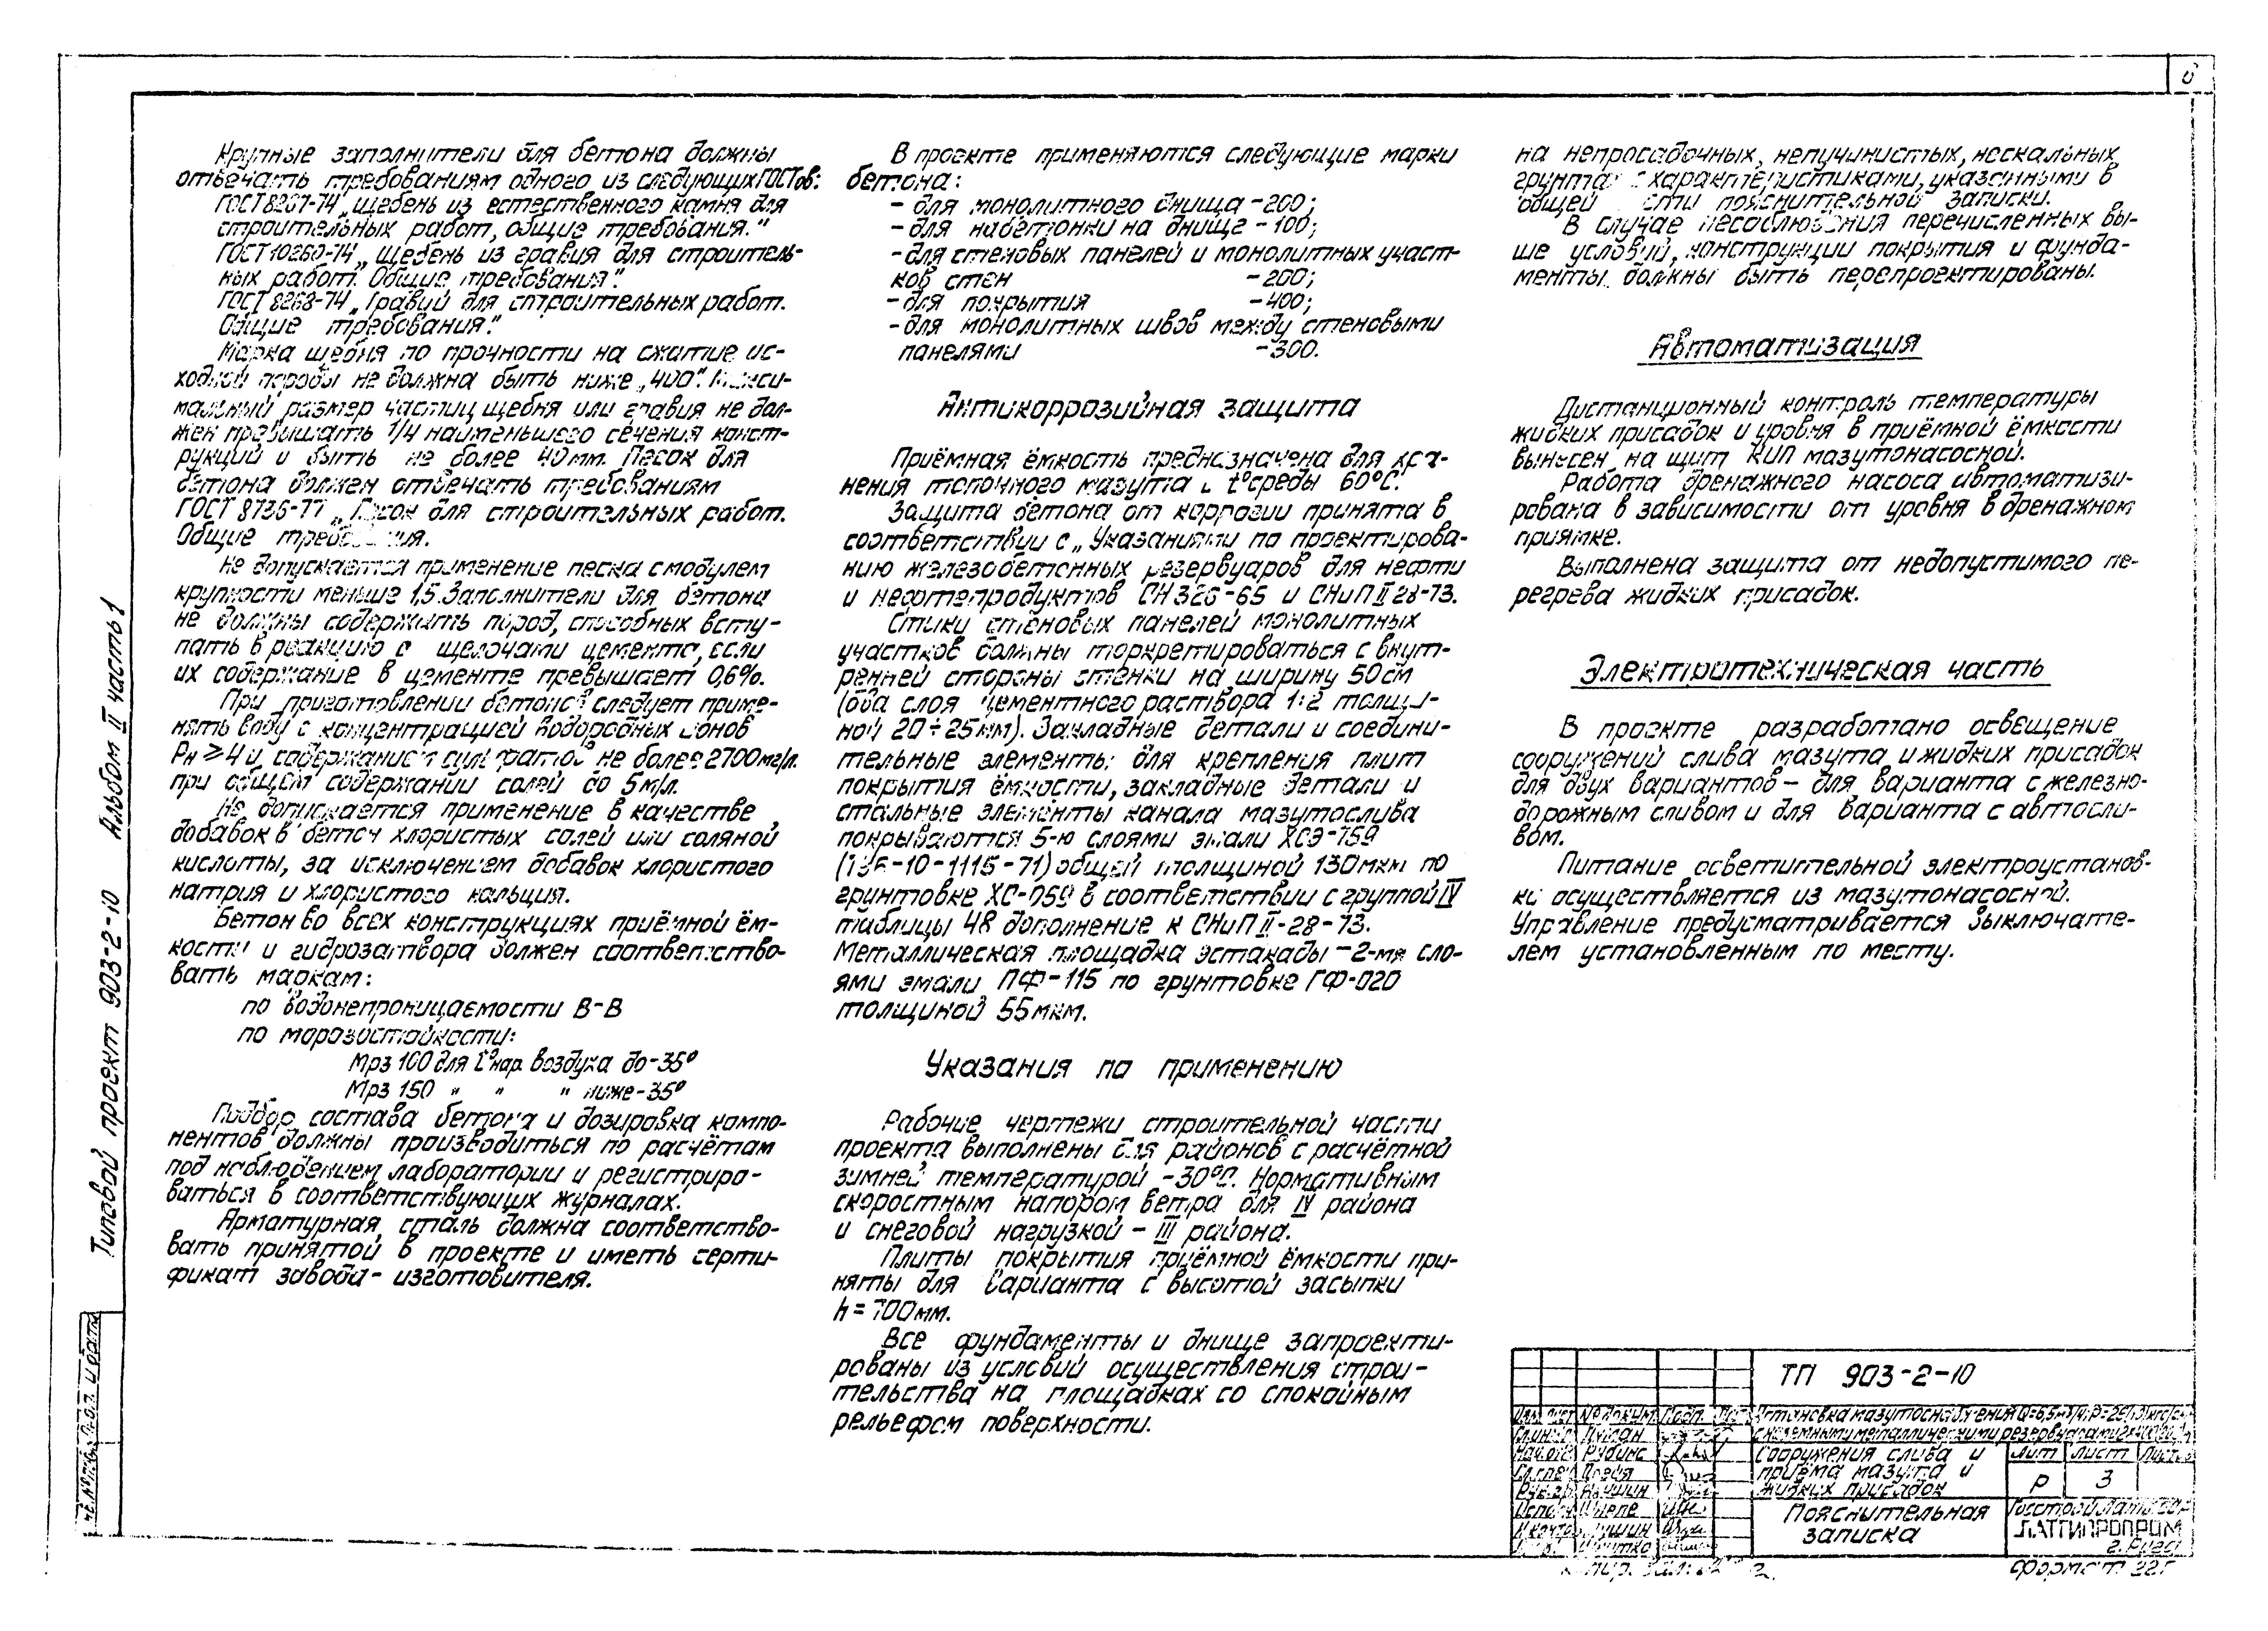 Крупные заполнители для бетона должны
отвечать требованиям одного из следующих ГОСТов:
ГОСТ 8267-74 „Щебень из естественного камня для
строительных работ, общие требования."
ГОСТ 10260-74 „Щебень из гравия для строитель-
ных работ. Общие требования".
ГОСТ 8268-74 „Гравий для строительных работ.
Общие требования."
Марка щебня по прочности на сжатие ис-
ходной породы не должна быть ниже „400". Макси-
мальный размер частиц щебня или гравия не дол-
жен превышать 1/4 наименьшего сечения конст-
рукций и быть не более 40 мм. Песок для
бетона должен отвечать требованиям
ГОСТ 8736-77 „Песок для строительных работ.
Общие требования.
Не допускается применение песка с модулем
крупности меньше 1,5. Заполнители для бетона
не должны содержать пород, способных всту-
пать в реакцию с щелочами цемента, если
их содержание в цементе превышает 0,6%.
При приготовлении бетонов следует приме-
нять воду с концентрацией водородных ионов
Рн ≥ 4 и содержанием сульфатов не более 2700 мг/л.
при общем содержании солей до 5 м/л.
Не допускается применение в качестве
добавок в бетон хлористых солей или соляной
кислоты, за исключением добавок хлористого
натрия и хлористого кальция.
Бетон во всех конструкциях приёмной ём-
кости и гидрозатвора должен соответство-
вать маркам:
по водонепроницаемости В-В
по морозостойкости:
Мрз 100 для t° нар. воздуха до -35°
Мрз 150 " " " ниже -35°
Подбор состава бетона и дозировка компо-
нентов должны производиться по расчётам
под наблюдением лаборатории и регистриро-
ваться в соответствующих журналах.
Арматурная сталь должна соответство-
вать принятой в проекте и иметь серти-
фикат завода - изготовителя.
В проекте применяются следующие марки
бетона:
- для монолитного днища - 200;
- для набетонки на днище - 100;
- для стеновых панелей и монолитных участ-
ков стен - 200;
- для покрытия - 400;
- для монолитных швов между стеновыми
панелями - 300.
Антикоррозийная защита
Приёмная ёмкость предназначена для хра-
нения топочного мазута с t° среды 60°С.
Защита бетона от коррозии принята в
соответствии с „Указаниями по проектирова-
нию железобетонных резервуаров для нефти
и нефтепродуктов СН 326-65 и СНиП II 28-73.
Стыки стеновых панелей монолитных
участков должны торкретироваться с внут-
ренней стороны стенки на ширину 50 см
(два слоя цементного раствора 1:2 толщи-
ной 20÷25 мм). Закладные детали и соедини-
тельные элементы для крепления плит
покрытия ёмкости, закладные детали и
стальные элементы канала мазутослива
покрываются 5-ю слоями эмали ХСЭ-759
-10-1115-71) общей толщиной 130 мкм по
грунтовке ХС-059 в соответствии с группой IV
таблицы 48 дополнение к СНиП II-28-73.
Металлическая площадка эстакады - 2-мя сло-
ями эмали ПФ-115 по грунтовке ГФ-020
толщиной 55 мкм.
Указания по применению
Рабочие чертежи строительной части
проекта выполнены для районов с расчётной
зимней температурой -30°С. Нормативным
скоростным напором ветра для IV района
и снеговой нагрузкой - III района.
Плиты покрытия приёмной ёмкости при-
няты для варианта с высотой засыпки
h = 700 мм.
Все фундаменты и днище запроекти-
рованы из условий осуществления строи-
тельства на площадках со спокойным
рельефом поверхности.
на непросадочных, непучинистых, нескальных
грунтах с характеристиками, указанными в
общей части пояснительной записки.
В случае несоблюдения перечисленных вы-
ше условий, конструкции покрытия и фунда-
менты должны быть перепроектированы.
Автоматизация
Дистанционный контроль температуры
жидких присадок и уровня в приёмной ёмкости
вынесен на щит КИП мазутонасосной.
Работа дренажного насоса автоматизи-
рована в зависимости от уровня в дренажном
приямке.
Выполнена защита от недопустимого пе-
регрева жидких присадок.
Электротехническая часть
В проекте разработано освещение
сооружений слива мазута и жидких присадок
для двух вариантов - для варианта с железно-
дорожным сливом и для варианта с автосли-
вом.
Питание осветительной электроустанов-
ки осуществляется из мазутонасосной.
Управление предусматривается выключате-
лем установленным по месту.
Типовой проект 903-2-10 Альбом II часть 1
ТП 903-2-10
Установка мазутоснабжения
с наземными металлическими резервуарами
Сооружения слива и
приёма мазута и
жидких присадок
Лит Лист
Р 3
Пояснительная
записка
ЛАТГИПРОПРОМ
г. Рига
формат 22г